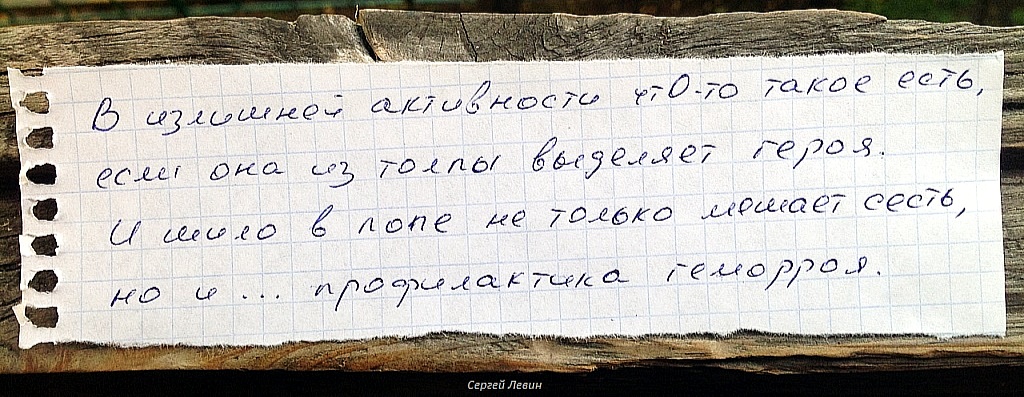 В излишней активности чтО-то такое есть,
если она из толпы выделяет героя.
И шило в попе не только мешает сесть,
но и ... профилактика геморроя.
Сергей Левин